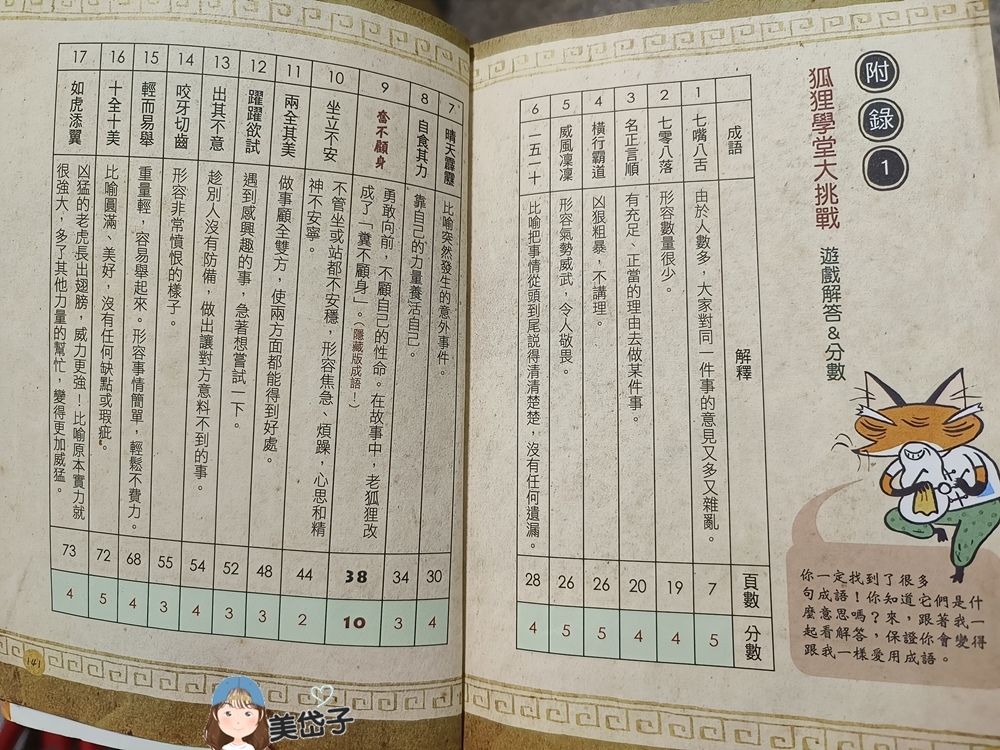 附錄1
狐狸學堂大挑戰
遊戲解答&分數
你一定找到了很多
句成語！你知道它們是什
麼意思嗎？來，跟著我一
起看解答，保證你會變得
跟我一樣愛用成語。
成語 解釋 頁數 分數
1 七嘴八舌 由於人數多，大家對同一件事的意見又多又雜亂。 7 5
2 七零八落 形容數量很少。 19 4
3 名正言順 有充足、正當的理由去做某件事。 20 4
4 橫行霸道 凶狠粗暴，不講理。 26 5
5 威風凜凜 形容氣勢威武，令人敬畏。 26 5
6 一五一十 比喻把事情從頭到尾說得清清楚楚，沒有任何遺漏。 28 4
7 晴天霹靂 比喻突然發生的意外事件。 30 4
8 自食其力 靠自己的力量養活自己。 34 3
9 奮不顧身 勇敢向前，不顧自己的性命。在故事中，老狐狸改
成了「糞不顧身」。（隱藏版成語！） 38 10
10 坐立不安 不管坐或站都不安穩，形容焦急、煩躁，心思和精
神不安寧。 44 2
11 兩全其美 做事顧全雙方，使兩方面都能得到好處。 48 3
12 躍躍欲試 遇到感興趣的事，急著想嘗試一下。 52 3
13 出其不意 趁別人沒有防備，做出讓對方意料不到的事。 54 4
14 咬牙切齒 形容非常憤恨的樣子。 55 3
15 輕而易舉 重量輕，容易舉起來。形容事情簡單，輕鬆不費力。 68 4
16 十全十美 比喻圓滿、美好，沒有任何缺點或瑕疵。 72 5
17 如虎添翼 凶猛的老虎長出翅膀，威力更強！比喻原本實力就
很強大，多了其他力量的幫忙，變得更加威猛。 73 4
141
美岱子